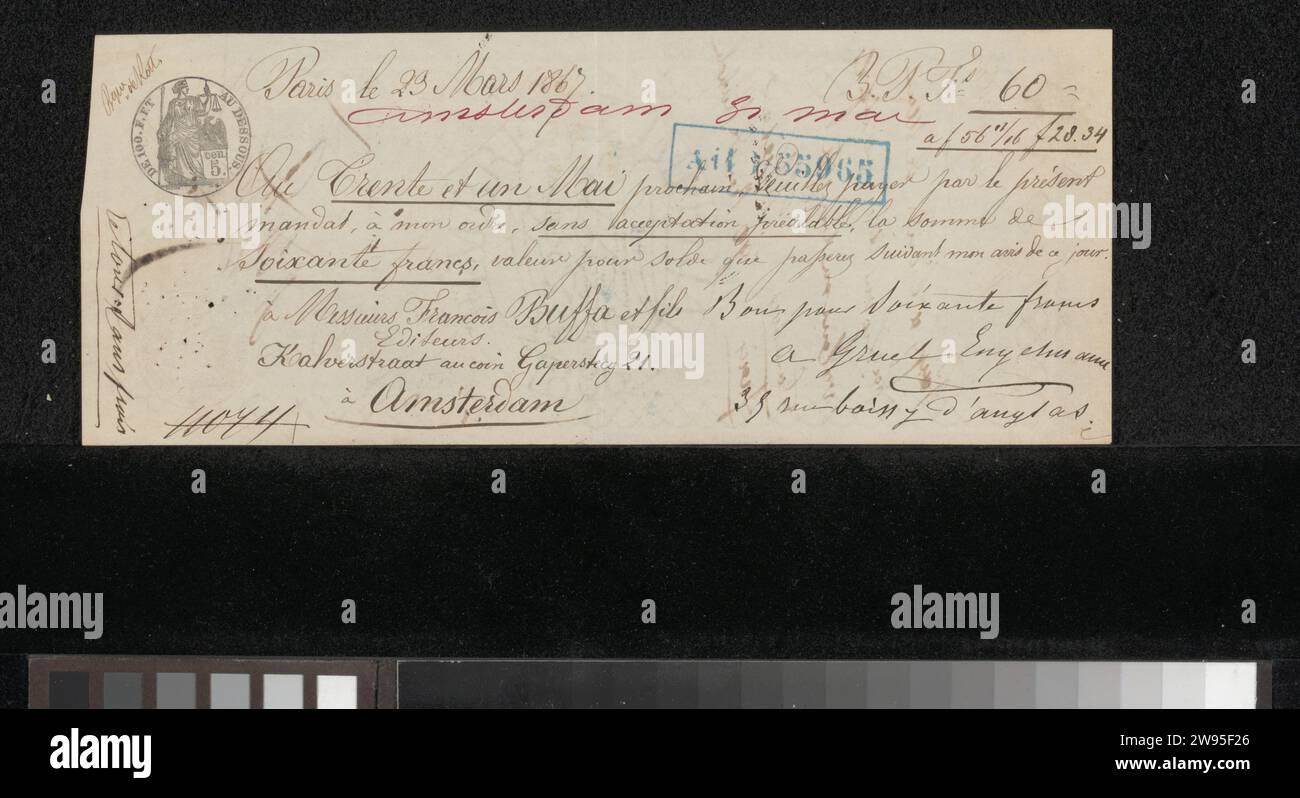 Paris le 23 Mars 1867.
B. P. Fs 60
Amsterdam 31 mai
a f 56 11/16 f 28.34
DE 100 F. ET AU DESSOUS
cen. 5.
65965
Au Trente et un Mai prochain, veuillez payer par le présent
mandat, à mon ordre, sans acceptation préalable, la somme de
Soixante francs, valeur pour solde que passerez suivant mon avis de ce jour.
à Messieurs François Buffa et fils
Editeurs.
Kalverstraat au coin Gapersteeg 21.
à Amsterdam
Bon pour Soixante francs
a Gruel Engelmann
35 rue boissy d'anglas.
Retour sans frais
11074
alamy
Image ID: 2W95F26
www.alamy.com